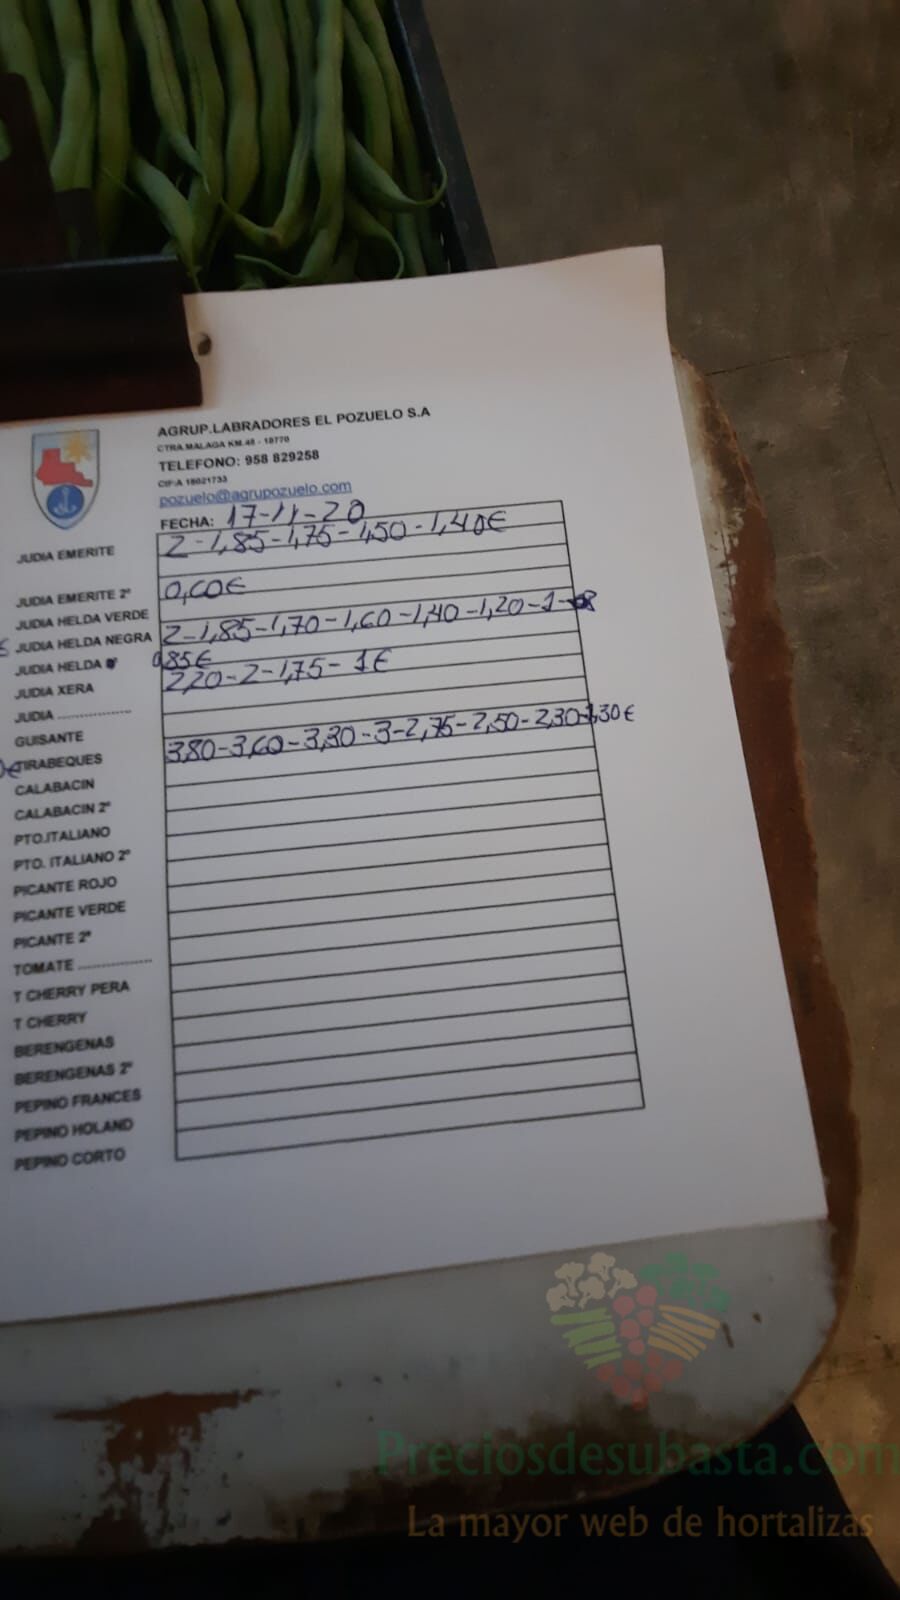 AGRUP.LABRADORES EL POZUELO S.A
CTRA.MALAGA KM.48 - 18770
TELEFONO: 958 829258
CIF:A 18021733
pozuelo@agrupozuelo.com
FECHA: 17-11-20
JUDIA EMERITE 2-1,85-1,75-1,50-1,40€
JUDIA EMERITE 2ª 0,60€
JUDIA HELDA VERDE
JUDIA HELDA NEGRA 2-1,85-1,70-1,60-1,40-1,20-1-
JUDIA HELDA 0,85€
JUDIA XERA 2,20-2-1,75-1€
JUDIA ................
GUISANTE
TIRABEQUES 3,80-3,60-3,30-3-2,75-2,50-2,30-1,30€
CALABACIN
CALABACIN 2ª
PTO.ITALIANO
PTO. ITALIANO 2ª
PICANTE ROJO
PICANTE VERDE
PICANTE 2ª
TOMATE ................
T CHERRY PERA
T CHERRY
BERENGENAS
BERENGENAS 2ª
PEPINO FRANCES
PEPINO HOLAND
PEPINO CORTO
Preciosdesubasta.com
La mayor web de hortalizas